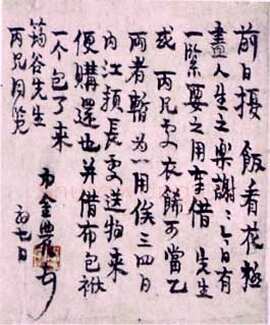 前日擾 飯看花極
盡人生之樂謝〻今日有
一緊要之用幸借 先生
或 丙兄處衣餙可當乙
兩者暫為一用俟三四日
內江穎長處送物來
便贖還也并借布包袱
一个包了来
筠谷先生
丙兄同覽
弟金農
七日